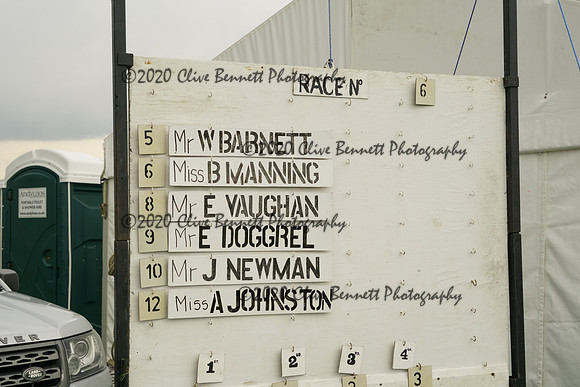 ©2020 Clive Bennett Photography
RACE Nº 6
5 Mr W BARNETT
©2020 Clive Bennett Photography
6 Miss B MANNING
8 Mr E VAUGHAN
©2020 Clive Bennett Photography
9 Mr E DOGGREL
10 Mr J NEWMAN
12 Miss A JOHNSTON
©2020 Clive Bennett Photography
1st 2nd 3rd 4th
2 3